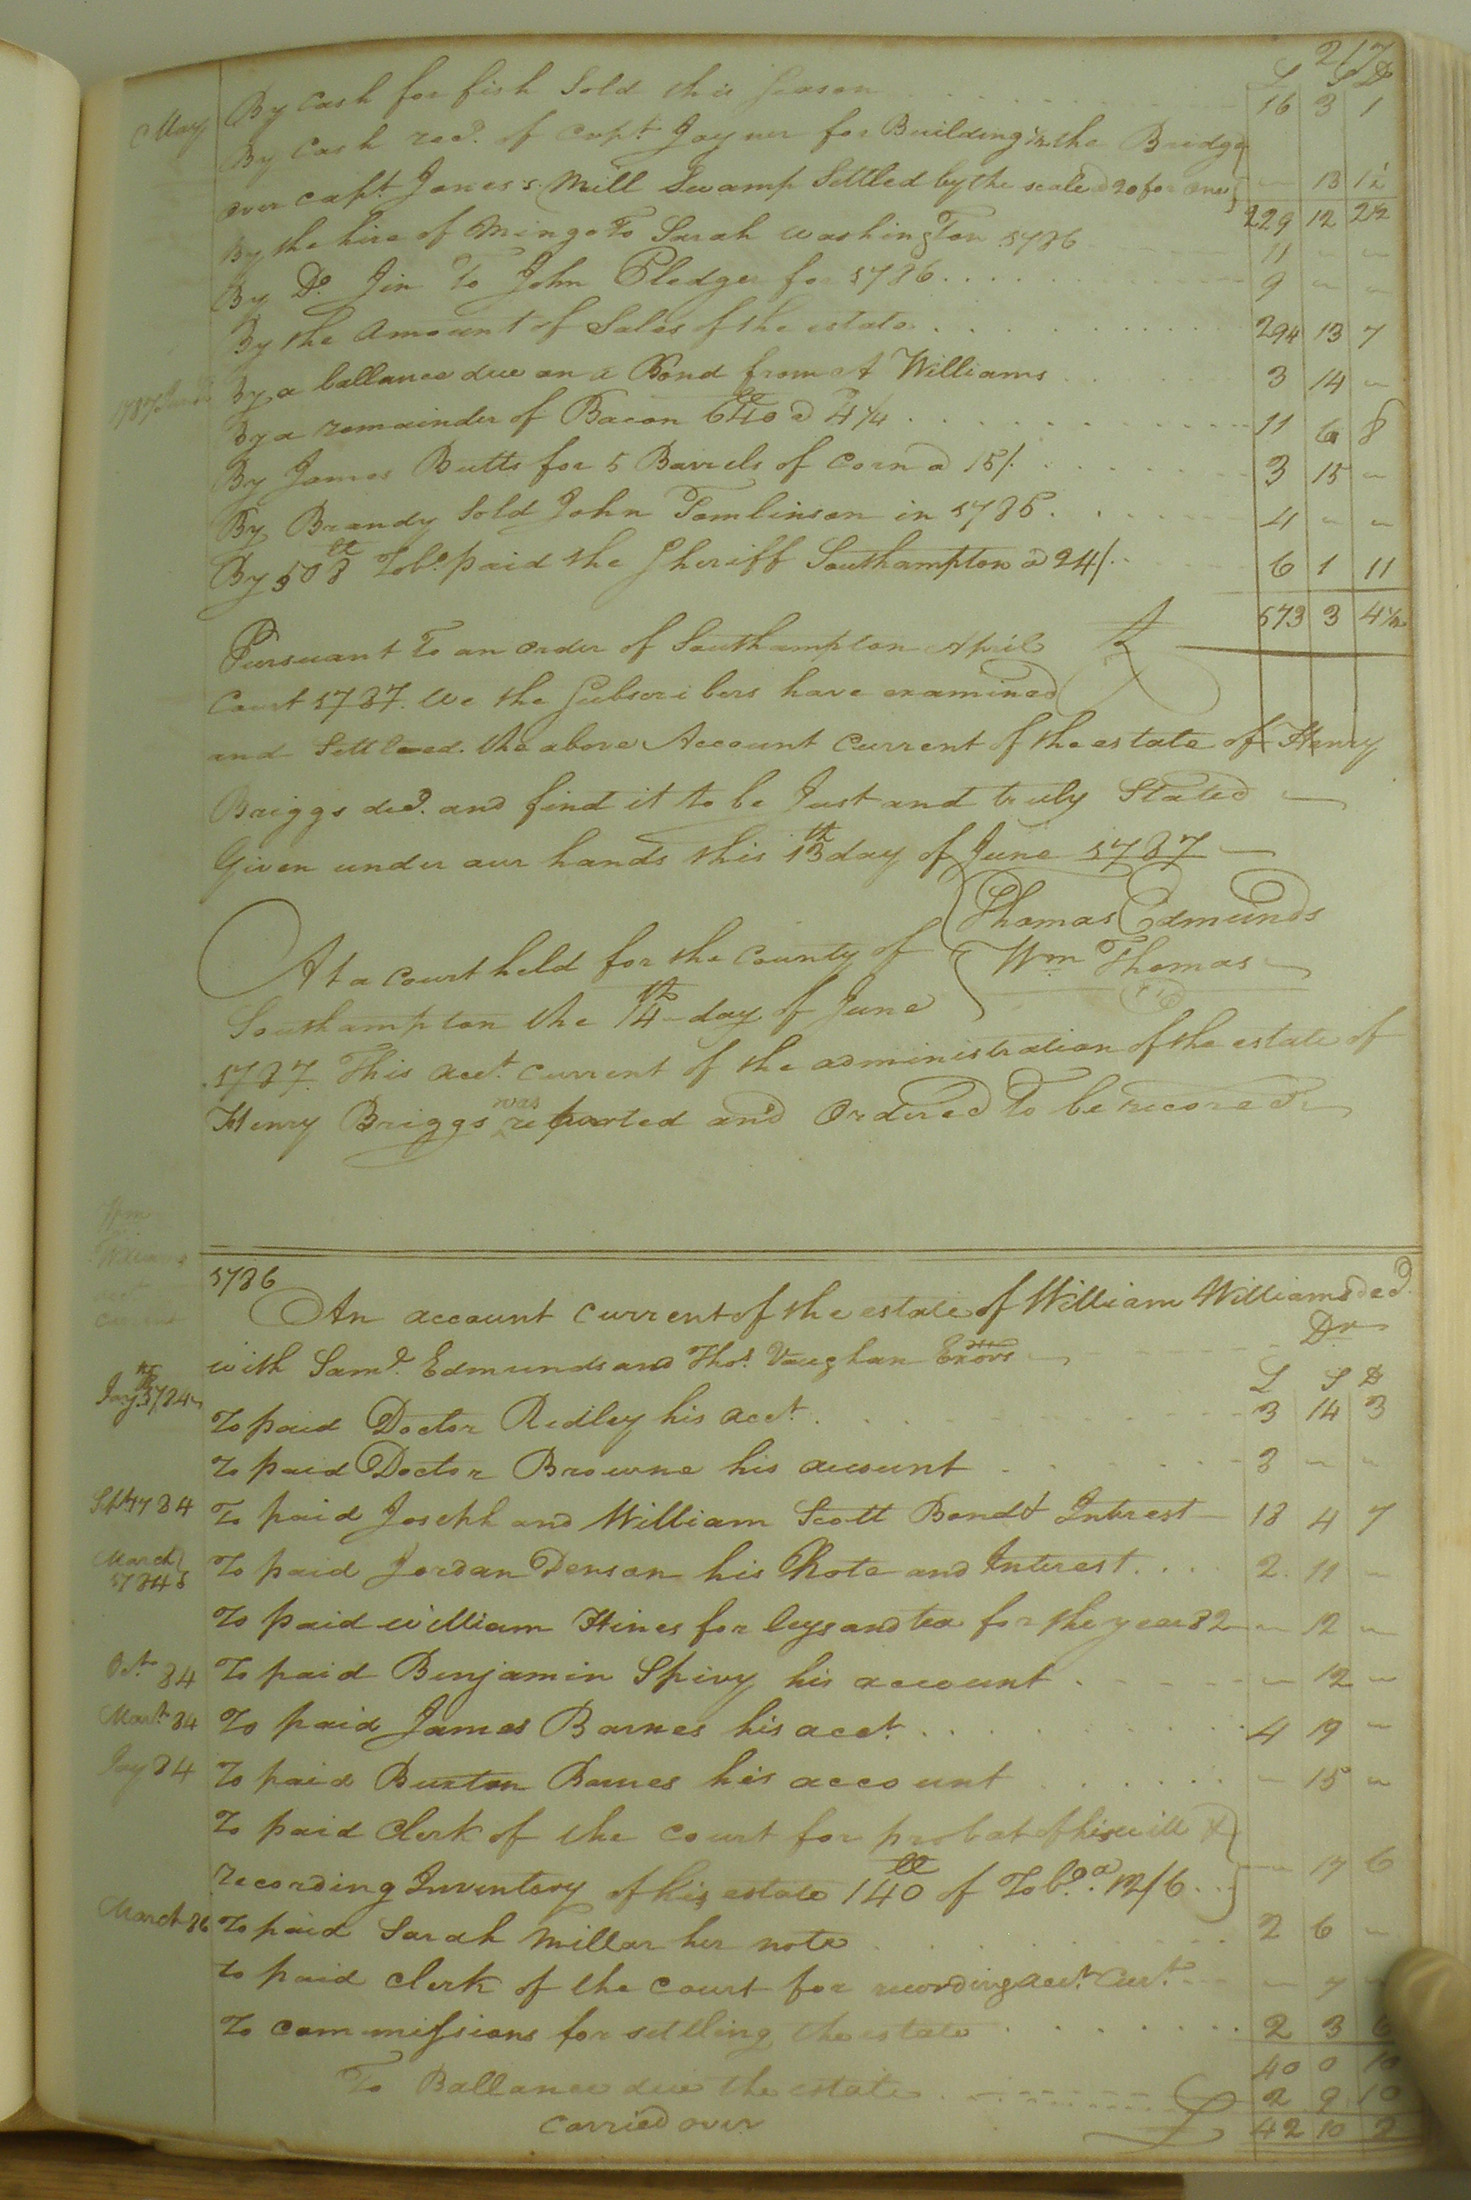 217
L S D
By Cash for fish Sold this Season 16 3 1
May By Cash recd. of Capt. Joyner for Building in the Bridge
over Capt. Jones's Mill Swamp Settled by the scale @ 20 for one — 13 1½
229 12 2½
By the hire of Mingo To Sarah Washington 1786 11 — —
By Do. Jin To John Pledger for 1786 9 — —
By the Amount of Sales of the estate 294 13 7
By a ballance due on a Bond from A Williams 3 14 —
By a remainder of Bacon 640 lb @ 4¼ 11 6 8
By James Butts for 5 Barrels of Corn @ 15/. 3 15 —
By Brandy Sold John Tomlinson in 1785 4 — —
By 508 lb Tobo. paid the Sheriff Southampton @ 24/. 6 1 11
573 3 4½
Pursuant To an order of Southampton April
Court 1787. We the Subscribers have examined
and Settled. the above Account Current of the estate of Henry
Briggs decd. and find it to be Just and truly Stated
Given under our hands this 13th day of June 1787
Thomas Edmunds
Wm Thomas
At a court held for the County of
Southampton the 14th day of June
1787. This acct. current of the administration of the estate of
Henry Briggs was reported and Ordered To be recorded
Wm
Williams
acct
Current
1786
An account current of the estate of William Williams decd.
with Saml. Edmunds and Thos. Vaughan Exors Dr
L S D
Jay. 1784 To paid Doctor Ridley his acct. 3 14 3
To paid Doctor Browne his account 3 — —
Sept 1784 To paid Joseph and William Scott Bond & Interest 18 4 7
March To paid Jordan Denson his Note and Interest 2 11 —
To paid William Hines for levys and tax for the year 82 — 12 —
Oct. 84 To paid Benjamin Spivy his account — 12 —
Mar. 84 To paid James Barnes his acct. 4 19 —
Jay 84 To paid Burton Barnes his account — 15 —
To paid Clerk of the Court for probat of his will &
recording Inventory of his estate 140 lb of Tobo. @ 12/6 — 17 6
March 86 To paid Sarah Millar her note 2 6 —
to paid clerk of the Court for recording acct. Curt. — 7
To commissions for settling the estate 2 3 6
40 0 10
To Ballance due the estate 2 9 10
carried over 42 10 2